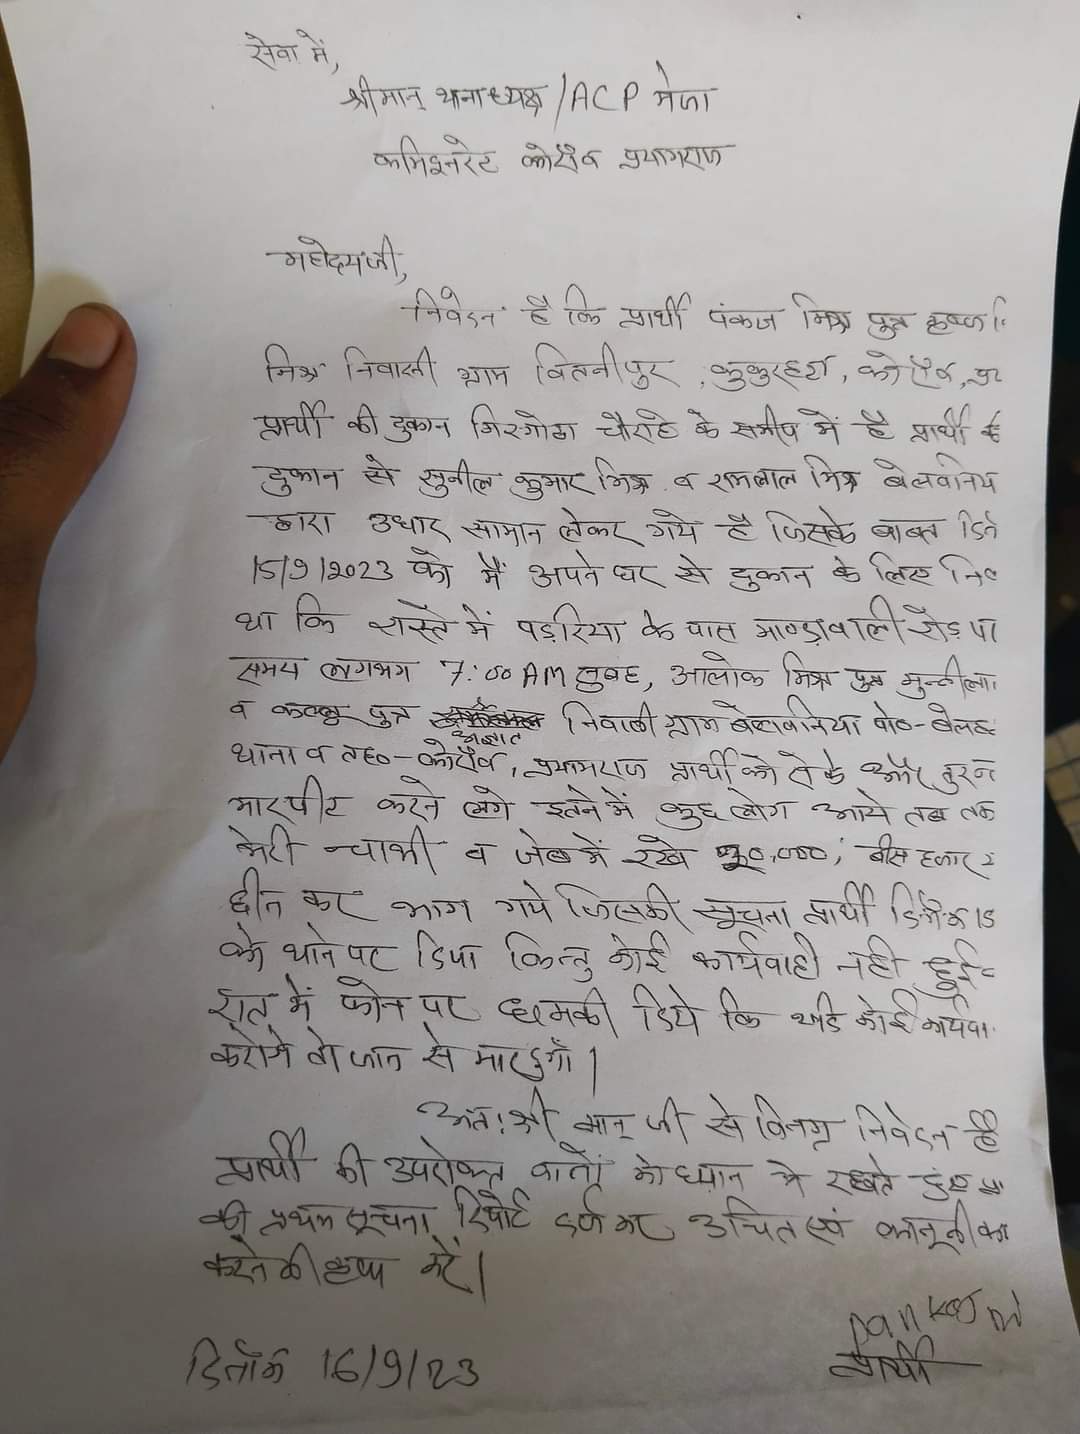 सेवा में,
श्रीमान् थानाध्यक्ष/ACP मेजा
कमिश्नरेट कोराँव प्रयागराज
महोदयजी,
निवेदन है कि प्रार्थी पंकज मिश्र पुत्र
मिश्र निवासी ग्राम कोराँव,
प्रार्थी की दुकान चौराहे के समीप में है प्रार्थी
दुकान से सुनील कुमार मिश्र व रामलाल मिश्र
द्वारा उधार सामान लेकर गये है जिसके बाबत
15/9/2023 को मैं अपने घर से दुकान के लिए
था कि रास्ते में पड़रिया के पास माण्डावाली रोड़
समय लगभग 7:00 AM सुबह, आलोक मिश्र पुत्र
व कल्लू पुत्र अज्ञात निवासी ग्राम बेलवनिया पो०-
थाना व तह०-कोराँव, प्रयागराज प्रार्थी को रोके और
मारपीट करने लगे इतने में कुछ लोग आये तब तक
मेरी चाभी व जेब में रखे 20,000; बीस हजार
छीन कर भाग गये जिसकी सूचना प्रार्थी दिनाँक
को थाने पर दिया किन्तु कोई कार्यवाही नही हुई
रात में फोन पर धमकी दिये कि कोई
करोगे तो जान से मार दुगाँ।
अत: श्री मान् जी से विनम्र निवेदन है
प्रार्थी की उपरोक्त बातों को ध्यान मे रखते हुए
की प्रथम सूचना रिपोर्ट दर्ज कर उचित एवं
करने की कृपा करें।
दिनाँक 16/9/23
प्रार्थी